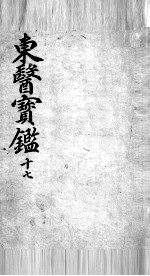 東醫寶鑑 十七